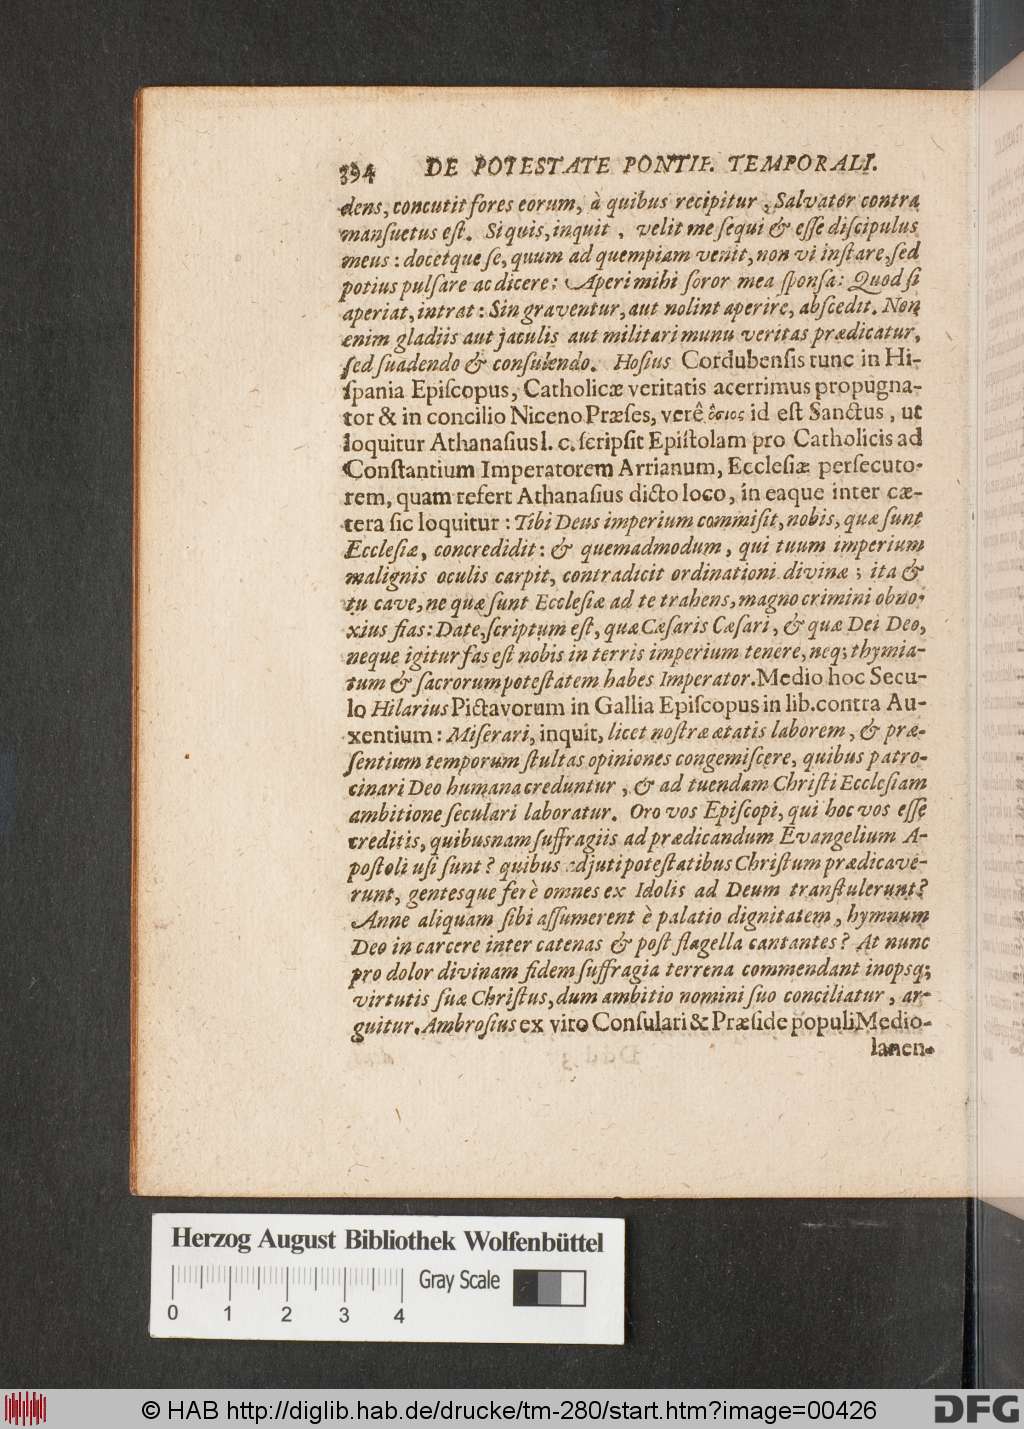 394 DE POTESTATE PONTIF. TEMPORALI.
dens, concutit fores eorum, à quibus recipitur, Salvator contra
mansuetus est. Si quis, inquit, velit me sequi & esse discipulus
meus: docetque se, quum ad quempiam venit, non vi instare, sed
potius pulsare ac dicere: Aperi mihi soror mea sponsa: Quod si
aperiat, intrat: Sin graventur, aut nolint aperire, abscedit. Non
enim gladiis aut jaculis aut militari manu veritas prædicatur,
sed suadendo & consulendo. Hosius Cordubensis tunc in Hi-
spania Episcopus, Catholicæ veritatis acerrimus propugna-
tor & in concilio Niceno Præses, verê ὅσιος id est Sanctus, ut
loquitur Athanasius l. c. scripsit Epistolam pro Catholicis ad
Constantium Imperatorem Arrianum, Ecclesiæ persecuto-
rem, quam refert Athanasius dicto loco, in eaque inter cæ-
tera sic loquitur: Tibi Deus imperium commisit, nobis, quæ sunt
Ecclesiæ, concredidit: & quemadmodum, qui tuum imperium
malignis oculis carpit, contradicit ordinationi divinæ; ita &
tu cave, ne quæ sunt Ecclesiæ ad te trahens, magno crimini obno-
xius fias: Date, scriptum est, quæ Cæsaris Cæsari, & quæ Dei Deo,
neque igitur fas est nobis in terris imperium tenere, neq; thymia-
tum & sacrorum potestatem habes Imperator. Medio hoc Secu-
lo Hilarius Pictavorum in Gallia Episcopus in lib. contra Au-
xentium: Miserari, inquit, licet nostræ ætatis laborem, & præ-
sentium temporum stultas opiniones congemiscere, quibus patro-
cinari Deo humana creduntur, & ad tuendam Christi Ecclesiam
ambitione seculari laboratur. Oro vos Episcopi, qui hoc vos esse
creditis, quibusnam suffragiis ad prædicandum Evangelium A-
postoli usi sunt? quibus adjuti potestatibus Christum prædicavê-
runt, gentesque ferè omnes ex Idolis ad Deum transtulerunt?
Anne aliquam sibi assumerent è palatio dignitatem, hymnum
Deo in carcere inter catenas & post flagella cantantes? At nunc
pro dolor divinam fidem suffragia terrena commendant inopsq;
virtutis suæ Christus, dum ambitio nomini suo conciliatur, ar-
guitur. Ambrosius ex viro Consulari & Præside populi Medio-
lanen-
Herzog August Bibliothek Wolfenbüttel
0 1 2 3 4 Gray Scale
© HAB http://diglib.hab.de/drucke/tm-280/start.htm?image=00426
DFG